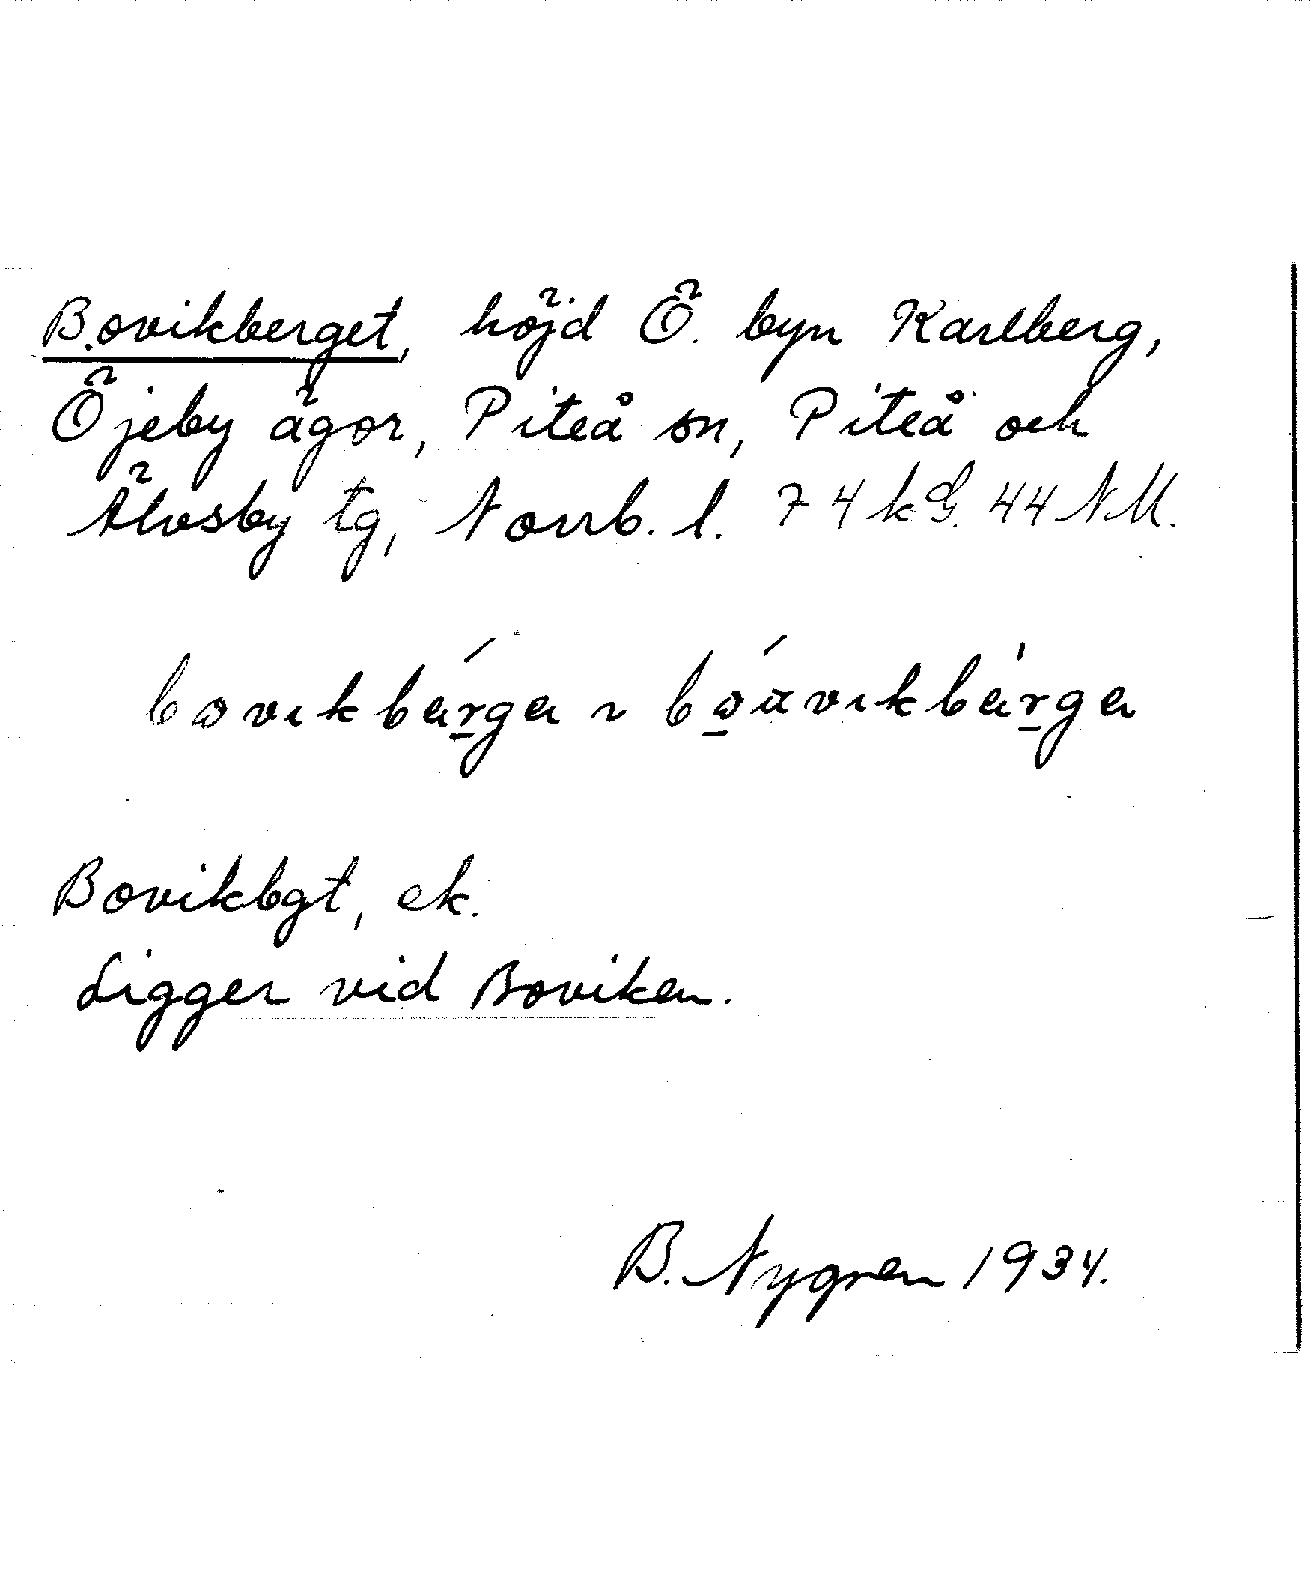 Bovikberget, höjd Ö. byn Karlberg,
Öjeby ägor, Piteå sn, Piteå och
Älvsby tg, Norrb. l. 74 k G. 44 NM.
bovikbärga ~ bouvikbärga
Bovikbgt, ek.
Ligger vid Boviken.
B. Nygren 1934.